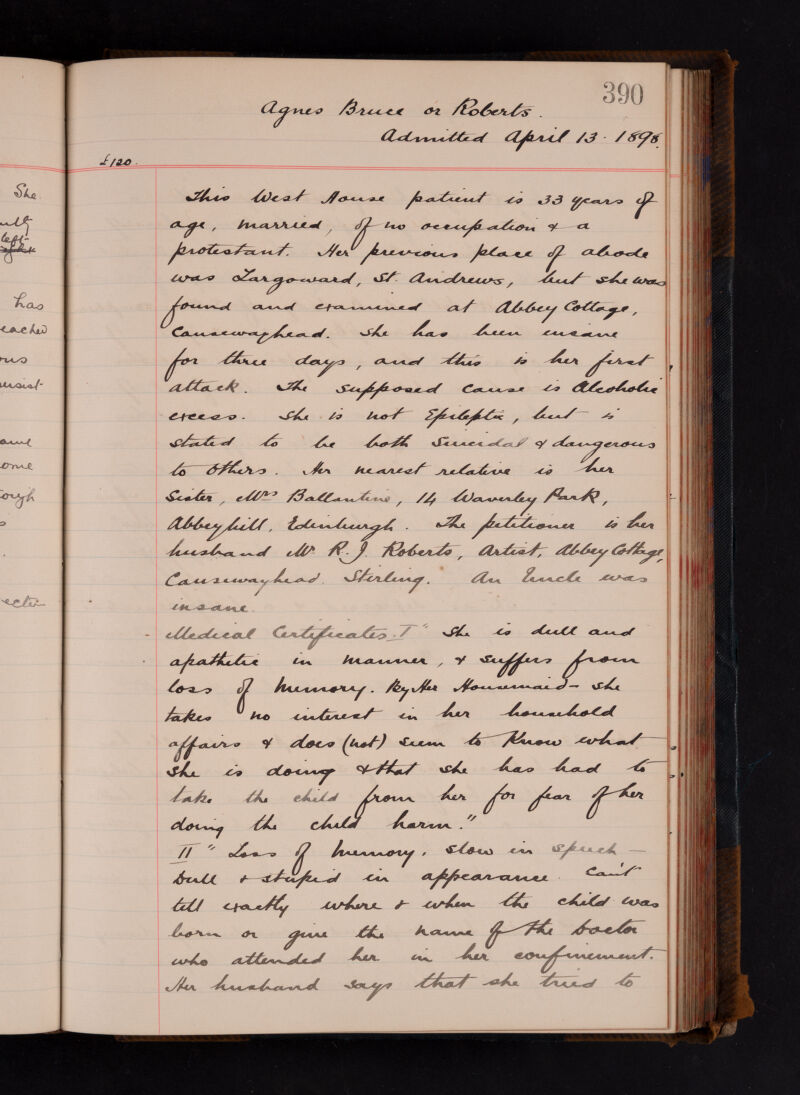 390
Agnes Bruce or Roberts.
Admitted April 13. 1898.
£120.
This West House patient is 33 years of
age, married, of no occupation & a
protestant. Her previous place of abode
was Largoward, St. Andrews, but she was
found and examined at Abbey Cottage,
Causewayhead. She has been insane
for three days, and this is her first
attack. The supposed cause is Alcoholic
excess. She is not Epileptic, but is
stated to be both Suicidal & dangerous
to others. Her nearest relative is her
Sister, Mrs Ballantine, 14 Waverley Park,
Abbeyhill, Edinburgh. The petitioner is her
husband Mr R. J. Roberts, Artist, Abbey Cottage,
Causewayhead. Stirling. An Uncle was
insane.
Medical Certificates. I "She is dull and
apathetic in manner, & suffers from
loss of memory. By Her Housemaid - she
takes no interest in her household
affairs & does (not) seem to know what
she is doing & that she has had to
take the child from her for fear of her
doing the child harm."
II "Loss of memory, slow in speech -
Dull & stupid in appearance. Can't
tell exactly where & when the child was
born or give the name of the Doctor
who attended her in her confinement.
Her husband says that she tried to
She
left
has